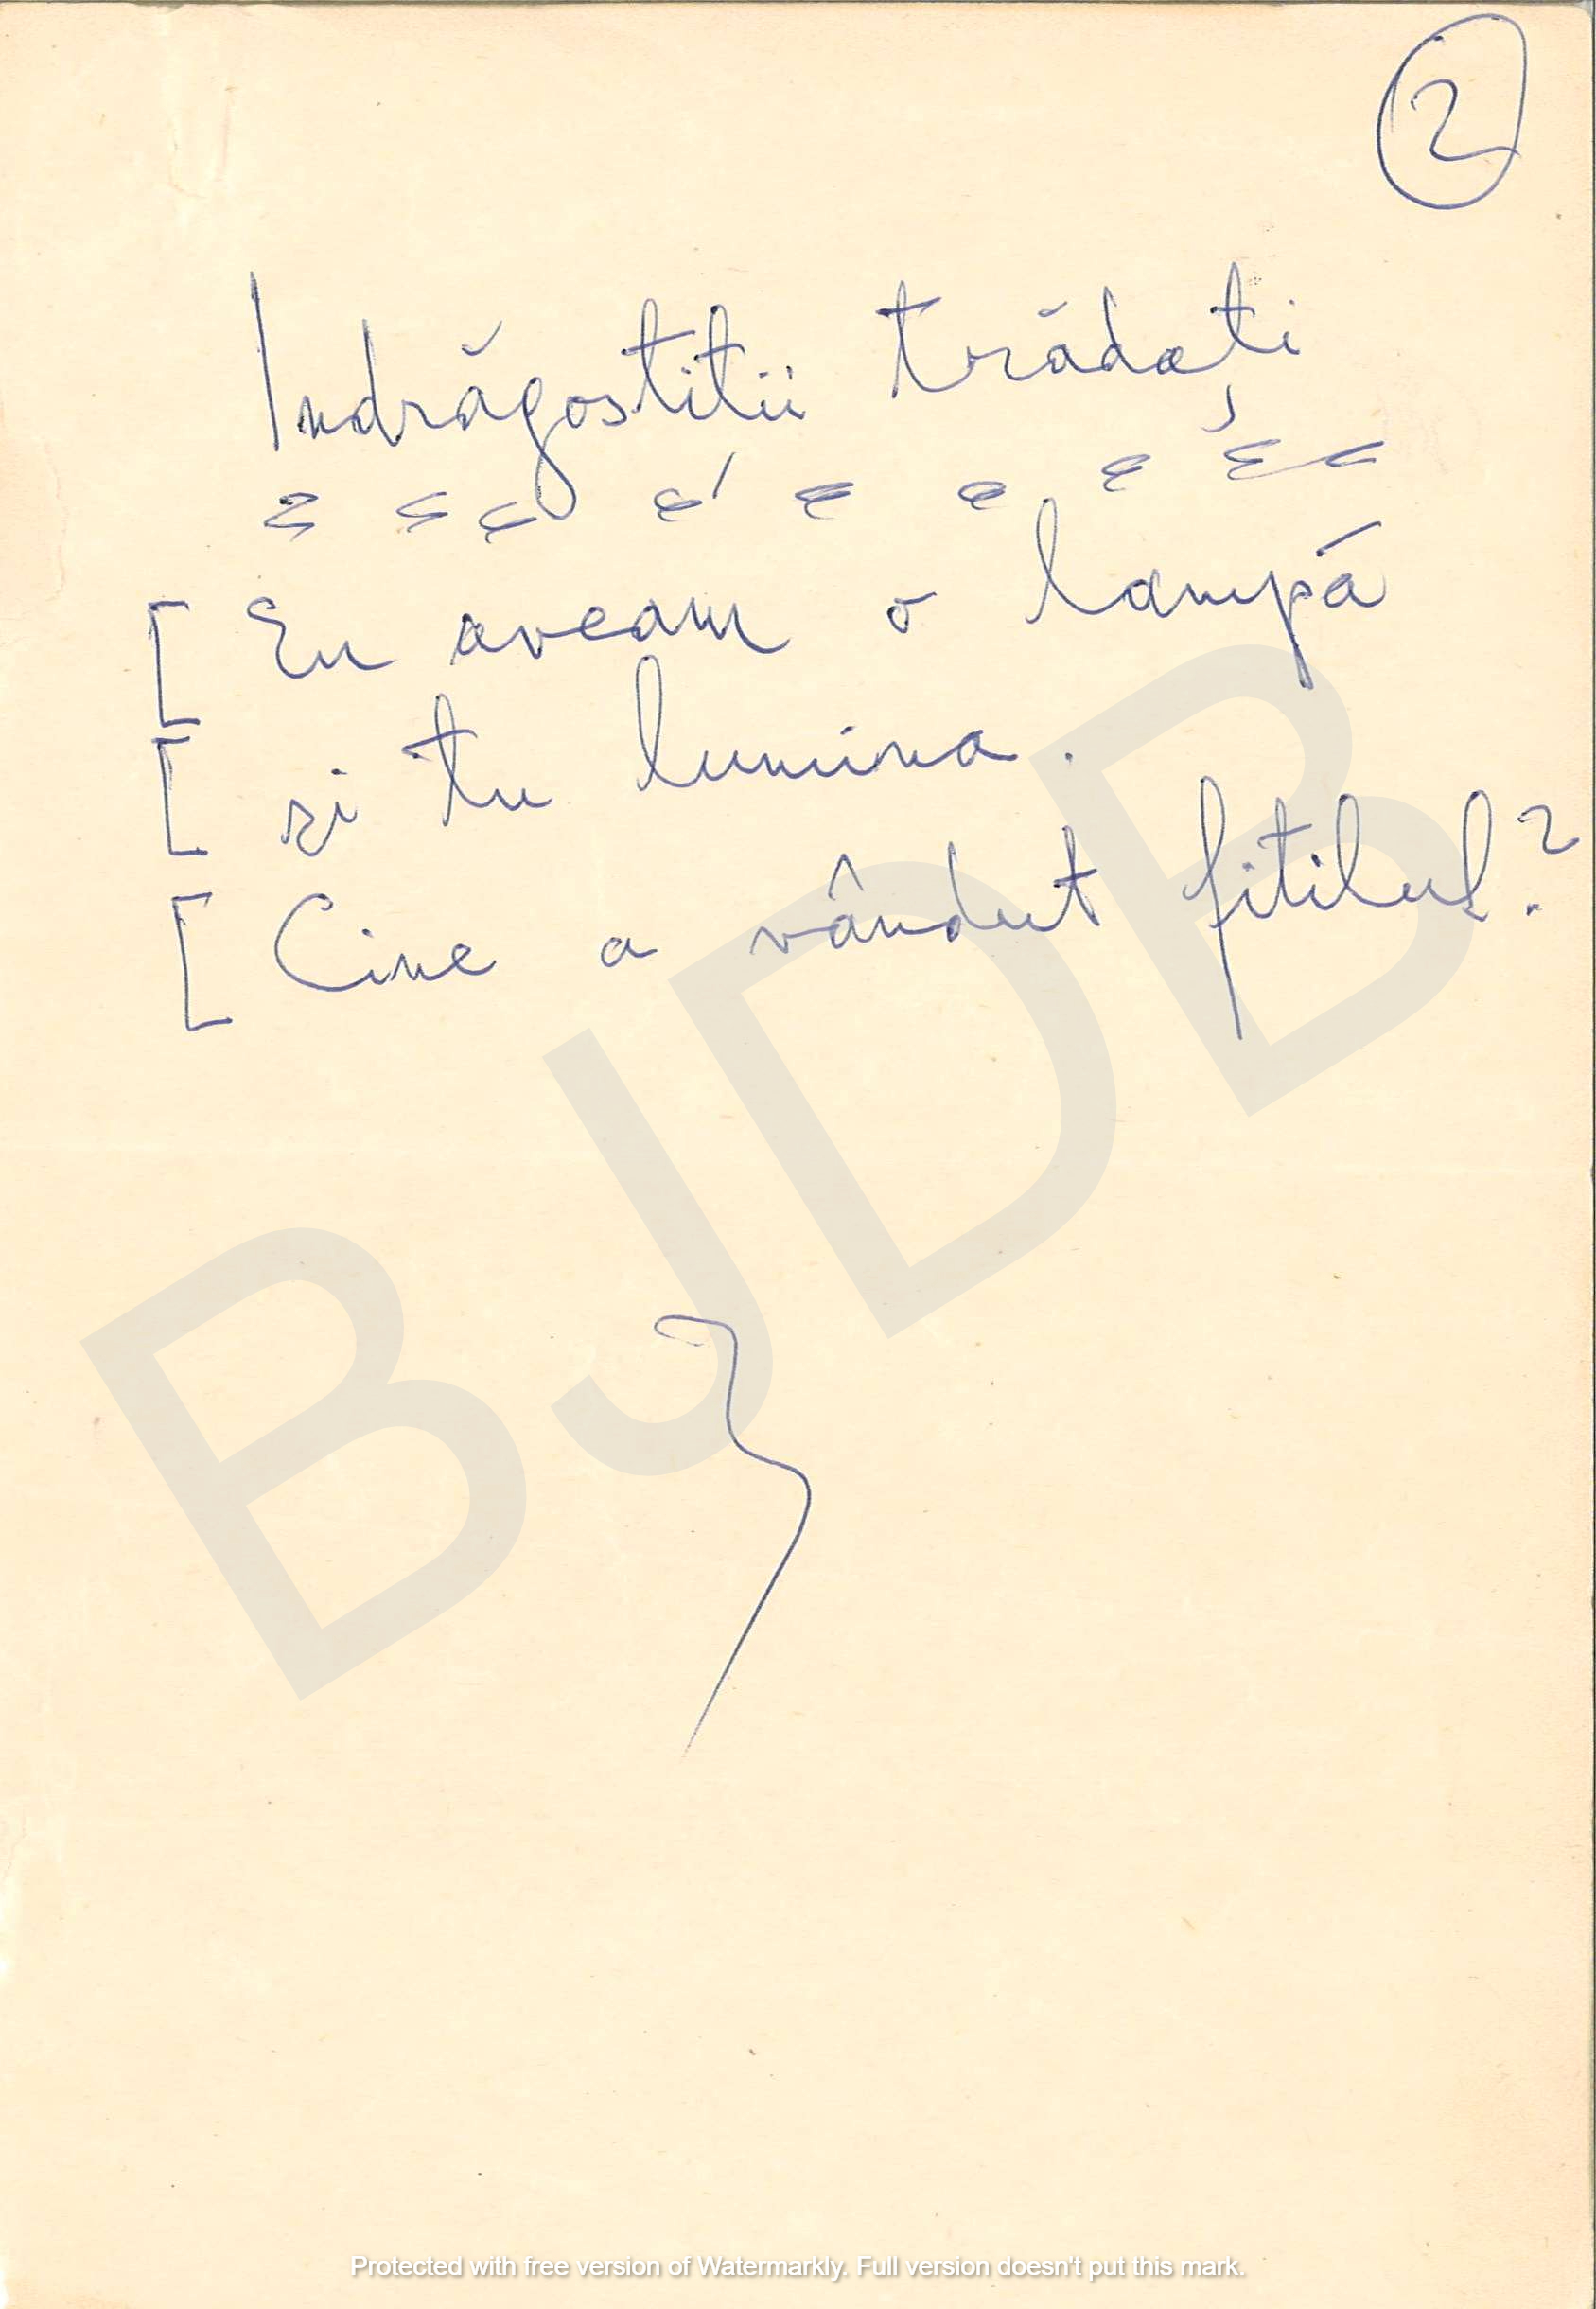 2
Indrăgostitii trădați
[ Eu aveam o lampă
[ si tu lumina.
[ Cine a vândut fitilul?
BJDB
Protected with free version of Watermarkly. Full version doesn't put this mark.